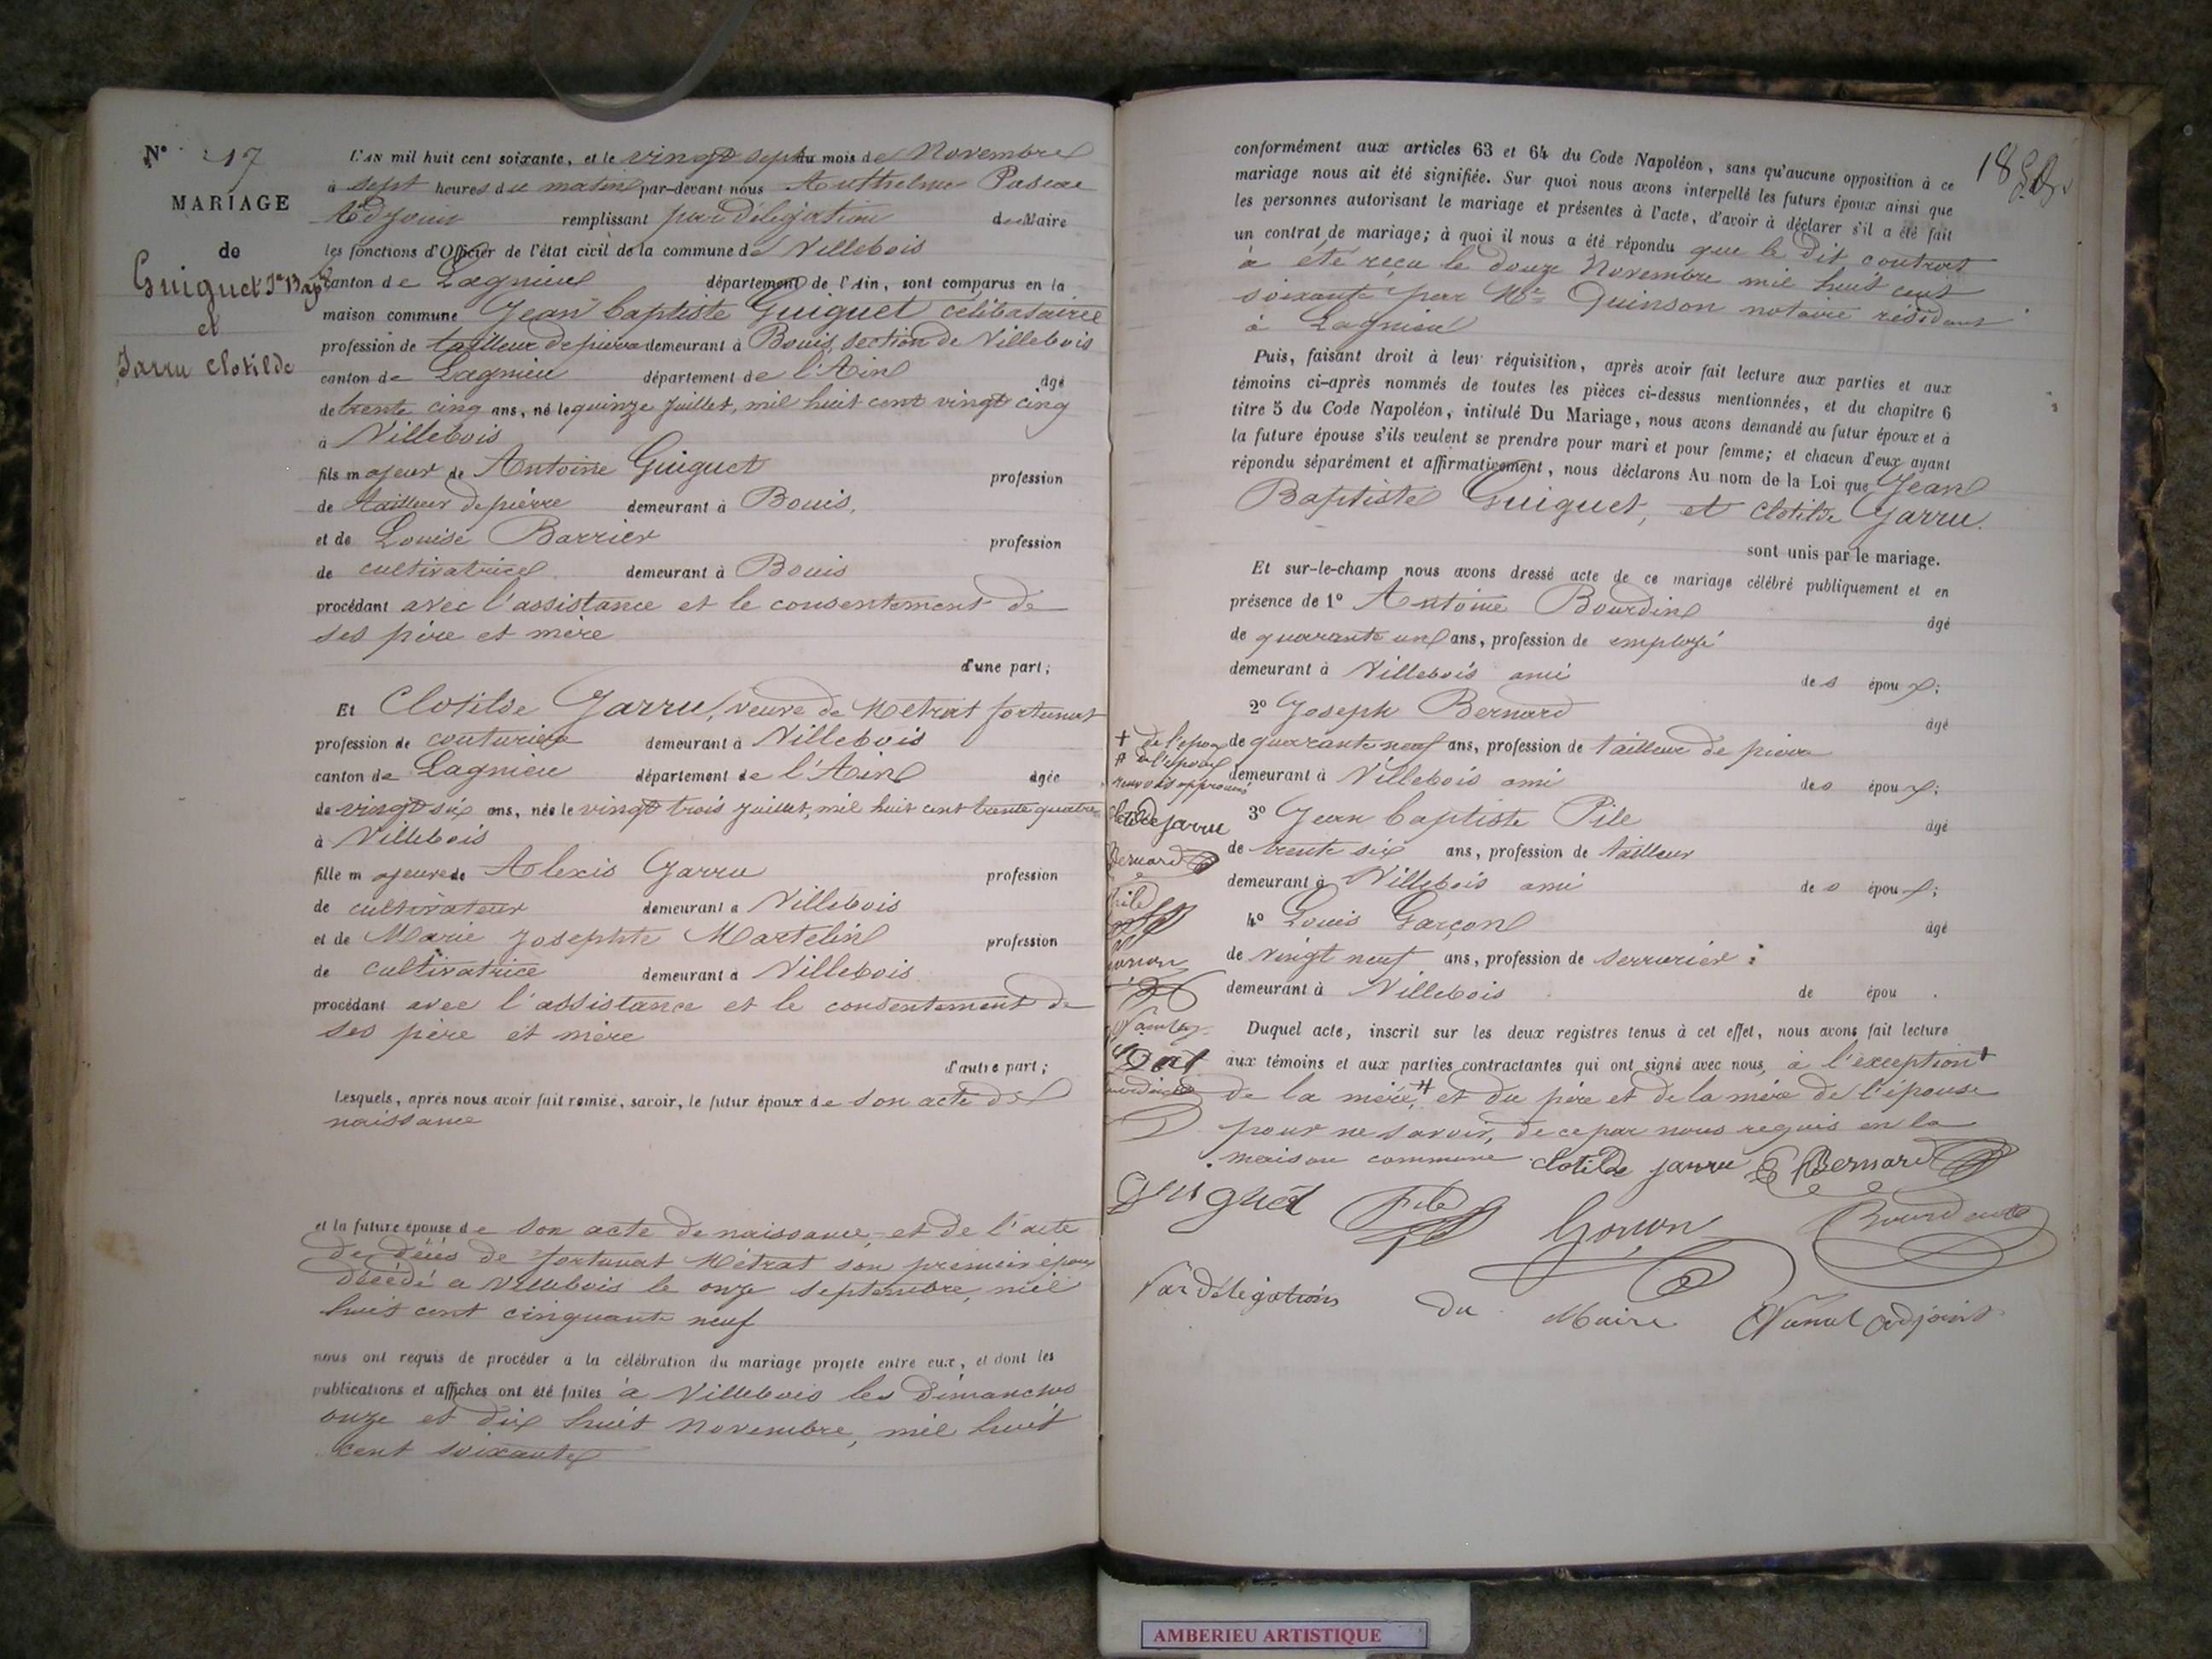 N° 17
MARIAGE
de
Guiguet Jn Bapt
et
Jarru Clotilde
L'AN mil huit cent soixante, et le vingt sept du mois de Novembre
à sept heures du matin par-devant nous Anthelme
Adjoint remplissant par délégation du Maire
les fonctions d'Officier de l'état civil de la commune de Villebois
canton de Lagnieu département de l'Ain, sont comparus en la
maison commune Jean baptiste Guiguet célibataire
profession de tailleur de pierre demeurant à Bouis, section de Villebois
canton de Lagnieu département de l'Ain âgé
de trente cinq ans, né le quinze Juillet, mil huit cent vingt cinq
à Villebois
fils majeur de Antoine Guiguet profession
de tailleur de pierre demeurant à Bouis,
et de Louise Barrier profession
de cultivatrice demeurant à Bouis
procédant avec l'assistance et le consentement de
ses père et mère
d'une part;
Et Clotilde Jarru, veuve de Métrat fortunat
profession de couturière demeurant à Villebois
canton de Lagnieu département de l'Ain âgée
de vingt six ans, née le vingt trois juillet, mil huit cent trente quatre
à Villebois
fille majeure de Alexis Jarru profession
de cultivateur demeurant à Villebois
et de Marie Josephte Martelin profession
de cultivatrice demeurant à Villebois
procédant avec l'assistance et le consentement de
ses père et mère
d'autre part;
Lesquels, après nous avoir fait remise, savoir, le futur époux de son acte de
naissance
et la future épouse de son acte de naissance, et de l'acte
de décès de fortunat Métrat son premier époux
décédé a Villebois le onze septembre, mil
huit cent cinquante neuf
nous ont requis de procéder à la célébration du mariage projeté entre eux, et dont les
publications et affiches ont été faites à Villebois les dimanches
onze et dix huit novembre, mil huit
cent soixante
18
conformément aux articles 63 et 64 du Code Napoléon, sans qu'aucune opposition à ce
mariage nous ait été signifiée. Sur quoi nous avons interpellé les futurs époux ainsi que
les personnes autorisant le mariage et présentes à l'acte, d'avoir à déclarer s'il a été fait
un contrat de mariage; à quoi il nous a été répondu que le dit contrat
à été reçu le douze Novembre mil huit cent
soixante par Me Quinson notaire résidant
à Lagnieu
Puis, faisant droit à leur réquisition, après avoir fait lecture aux parties et aux
témoins ci-après nommés de toutes les pièces ci-dessus mentionnées, et du chapitre 6
titre 5 du Code Napoléon, intitulé Du Mariage, nous avons demandé au futur époux et à
la future épouse s'ils veulent se prendre pour mari et pour femme; et chacun d'eux ayant
répondu séparément et affirmativement, nous déclarons Au nom de la Loi que Jean
Baptiste Guiguet, et Clotilde Jarru.
sont unis par le mariage.
Et sur-le-champ nous avons dressé acte de ce mariage célébré publiquement et en
présence de 1° Antoine Bourdin âgé
de quarante un ans, profession de employé
demeurant à Villebois ami des époux;
2° Joseph Bernard âgé
de quarante neuf ans, profession de tailleur de pierre
demeurant à Villebois ami des époux;
3° Jean baptiste Pile âgé
de trente six ans, profession de tailleur
demeurant à Villebois ami des époux;
4° Louis Garçon âgé
de vingt neuf ans, profession de serrurier
demeurant à Villebois de épou .
Duquel acte, inscrit sur les deux registres tenus à cet effet, nous avons fait lecture
aux témoins et aux parties contractantes qui ont signé avec nous, à l'exception +
de la mère, # et du père et de la mère de l'épouse
pour ne savoir, de ce par nous requis en la
maison commune
+ de l'époux
# de l'époux
renvois approuvés
Clotilde jarru
Bernard
Pile
Clotilde jarru Bernard
Guiguet Pile Gonon
Par délégation du Maire adjoint
AMBERIEU ARTISTIQUE